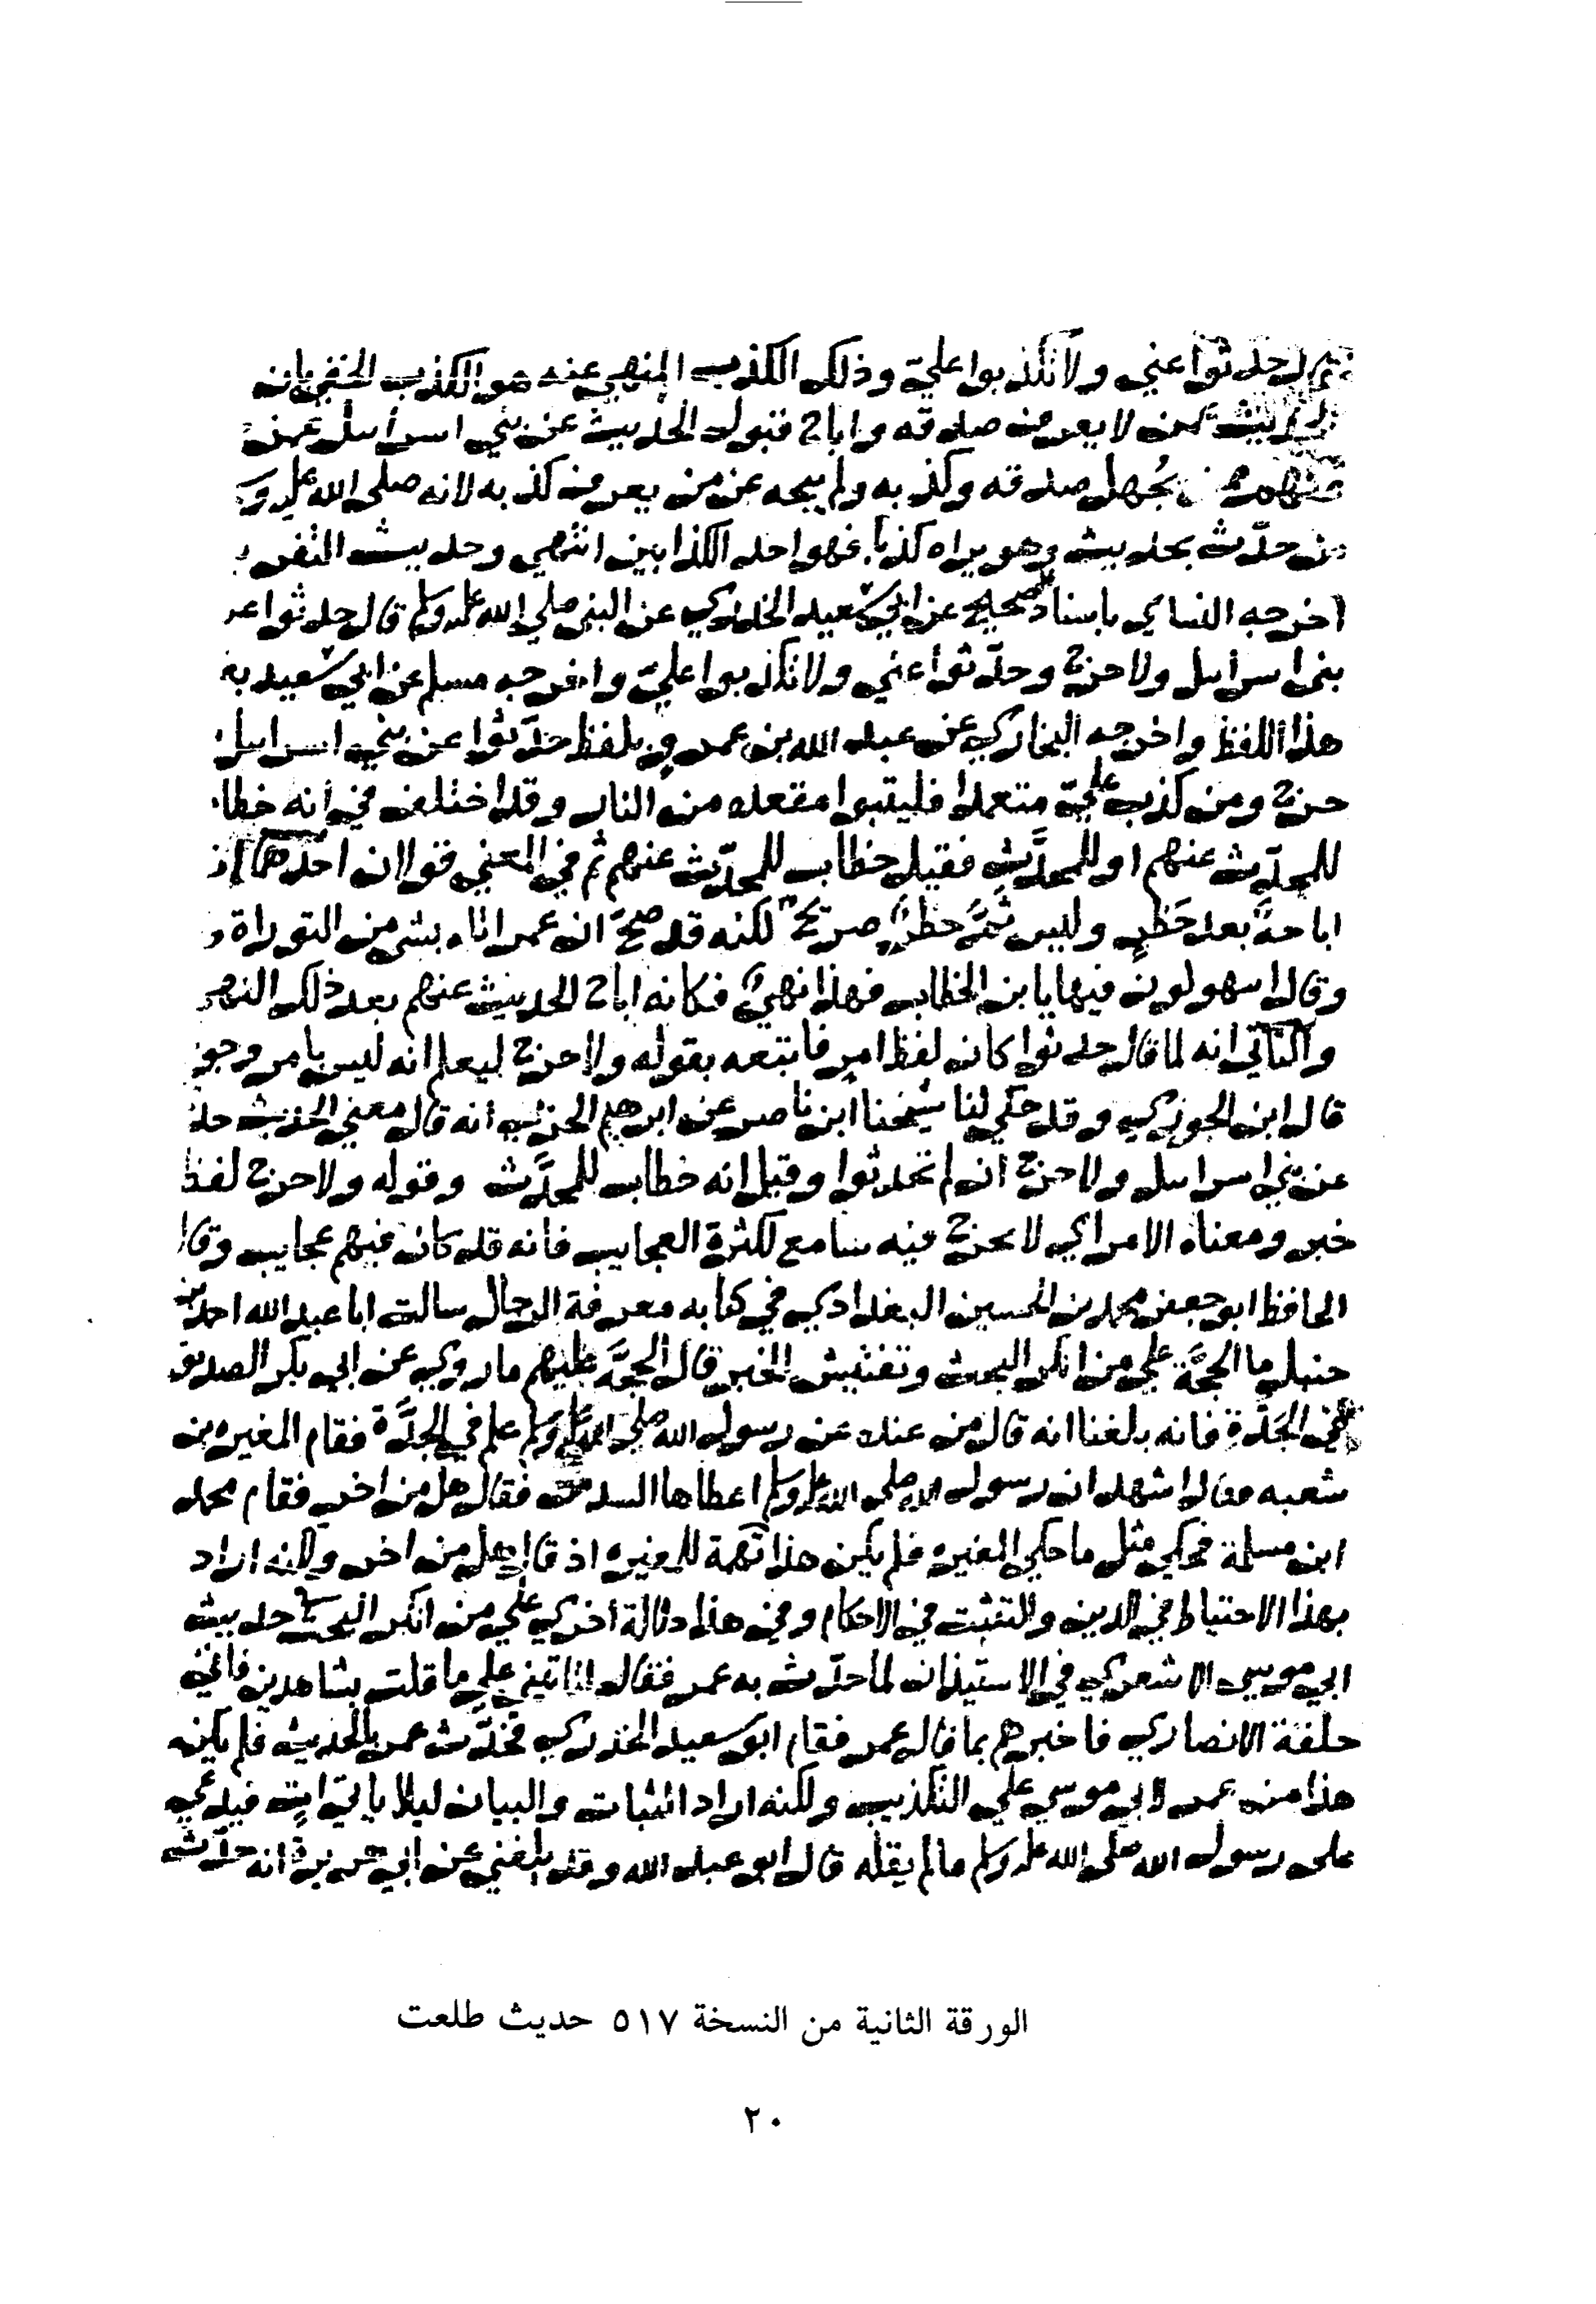 حدثوا عني ولا تكذبوا علي وذلك الكذب المنهي عنه هو الكذب الخفي بان
عمن لا يعرف صدقه واباح قبول الحديث عن بني اسرايل عمن
يجهل صدقه وكذبه ولم يبحه عن من يعرف كذبه لانه صلى الله عليه و
من حدّث بحديث وهو يراه كذبا فهو احد الكذابين انتهي وحديث
اخرجه النساي باسناد صحيح عن ابي سعيد الخدري عن النبي صلي الله عليه وسلم قال حدثوا عن
بني اسرايل ولا حرج وحدّثوا عني ولا تكذبوا عليّ واخرجه مسلم عن ابي سعيد به
هذا اللفظ واخرجه البخاري عن عبد الله بن عمرو بلفظ حدّثوا عن بني اسرايل
حرج ومن كذب عليّ متعمدا فليتبوا مقعده من النار وقد اختلف في انه خطا
للمحدّث عنهم او للمحدَّث فقيل خطاب للمحدّث عنهم ثم في المعني قولان احدهما
اباحةً بعد حَظرٍ وليس ثمَّ حظرٌ صريحٌ لكنه قد صحّ ان عمر اتاه بشي من التوراة و
وقال امتهوكون فيها يا بن الخطاب فهذا نهيٌ فكانه اباح الحديث عنهم بعد ذلك النهي
والثاني انه لما قال حدثوا كان لفظ امرٍ فاتبعه بقوله ولا حرج ليعلم انه ليس بامر وجو
قال ابن الجوزي وقد حكي لنا شيخنا ابن ناصر عن ابرهيم الحربي انه قال معني الحديث حد
عن بني اسرايل ولا حرج ان لم تحدثوا وقيل انه خطاب للمحدَّث وقوله ولا حرج لفظ
خبر ومعناه الامر اي لا يحرج فيه سامع لكثرة العجايب فانه قد كان فيهم عجايب وقال
الحافظ ابو جعفر محمد بن الحسين البغدادي في كتابه معرفة الرجال سالت ابا عبد الله احمد بن
حنبل ما الحجَّة علي من انكر البحث وتفتيش الخبر قال الحجَّة عليهم ما روي عن ابي بكر الصديق
في الجَدَّة فانه بلغنا انه قال من عنده عن رسول الله صلي الله عليه وسلم علم في الجدَّة فقام المغيره بن
شعبه فقال اشهد ان رسول الله صلي الله عليه وسلم اعطاها السدس فقال هل من اخر فقام محمد
ابن مسلمة فحكي مثل ما حكي المغيره فلم يكن هذا تهمة للمغيره اذ قال هل من اخر ولكنه اراد
بهذا الاحتياط في الدين والتثبت في الاحكام وفي هذا دلالة اخري علي من انكر البحث حديث
ابي موسي الاشعري في الاستيذان لما حدّث به عمر فقال لتاتيني علي ما قلت بشاهدين فاتي
حلقة الانصاري فاخبرهم بما قال عمر فقام ابو سعيد الخدري فحدَّث عمر بالحديث فلم يكن
هذا من عمر لابي موسي علي التكذيب ولكنه اراد اثبات والبيان ليلا ياتي ات فيدعي
على رسول الله صلى الله عليه وسلم ما لم يقله قال ابو عبد الله وقد بلغني عن ابي هريرة انه حدّث
الورقة الثانية من النسخة ٥١٧ حديث طلعت
٢٠